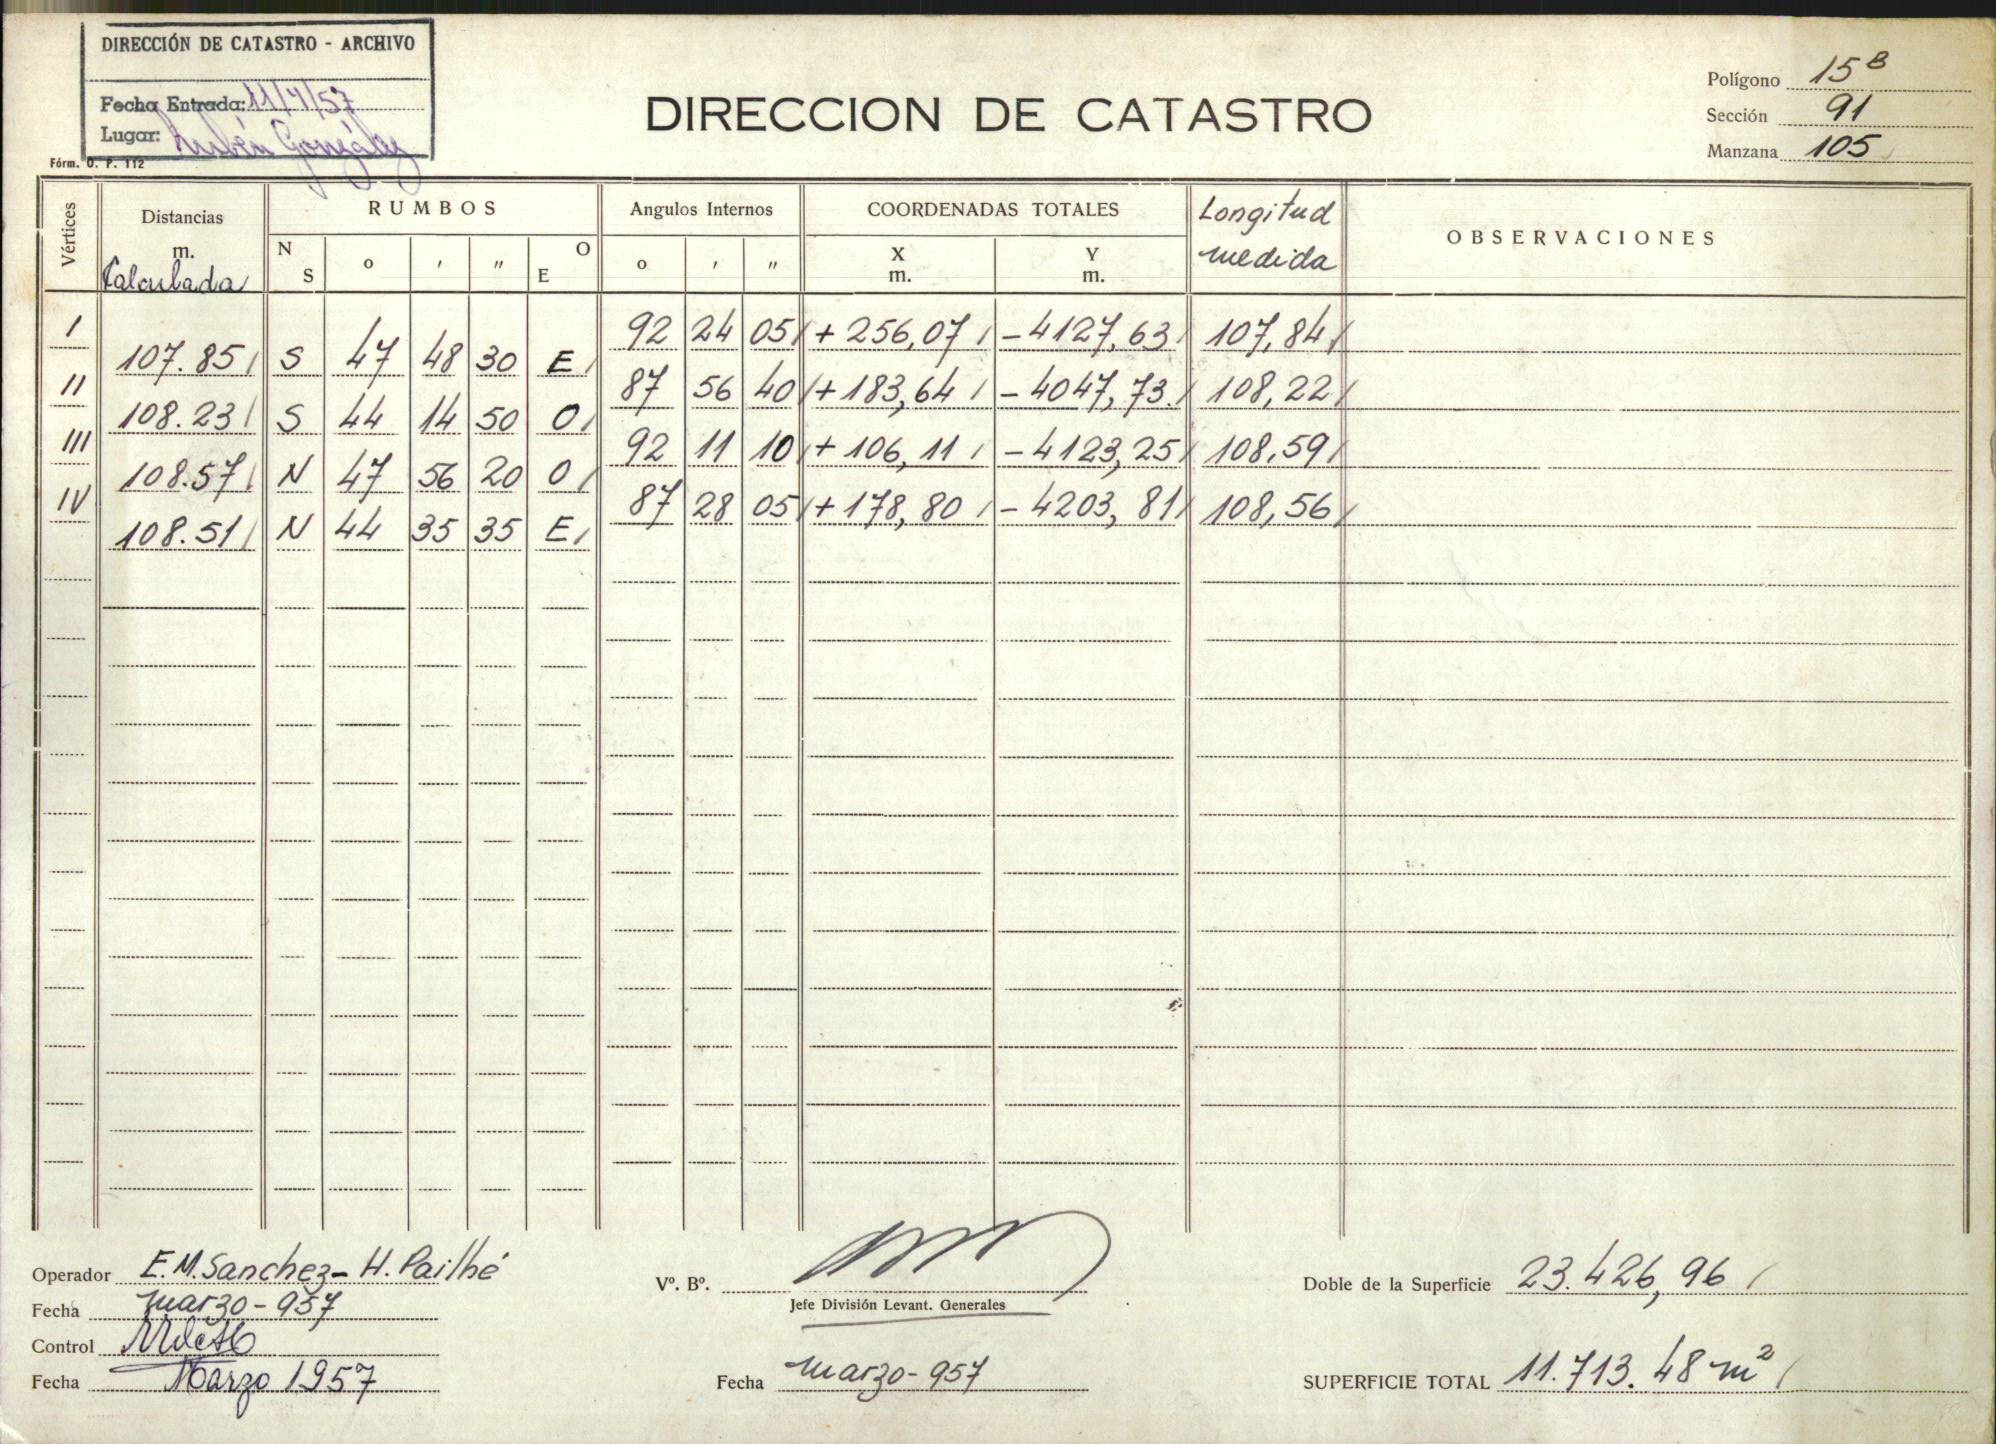 DIRECCIÓN DE CATASTRO - ARCHIVO
Fecha Entrada: 11/4/57
Lugar: Rubén González
Fórm. O. P. 112
DIRECCION DE CATASTRO
Polígono 15 B
Sección 91
Manzana 105
Vértices
Distancias
m.
Calculada
RUMBOS
N S ° ' " O E
Angulos Internos
° ' "
COORDENADAS TOTALES
X
m.
Y
m.
Longitud
medida
OBSERVACIONES
I 92 24 05 + 256,07 - 4127,63 107,84
107.85 S 47 48 30 E
II 87 56 40 + 183,64 - 4047,73 108,22
108.23 S 44 14 50 O
III 92 11 10 + 106,11 - 4123,25 108,59
108.57 N 47 56 20 O
IV 87 28 05 + 178,80 - 4203,81 108,56
108.51 N 44 35 35 E
Operador E. M. Sanchez - H. Pailhé
Fecha marzo - 957
Control
Fecha Marzo 1957
Vº. Bº.
Jefe División Levant. Generales
Fecha marzo - 957
Doble de la Superficie 23.426,96
SUPERFICIE TOTAL 11.713.48 m²